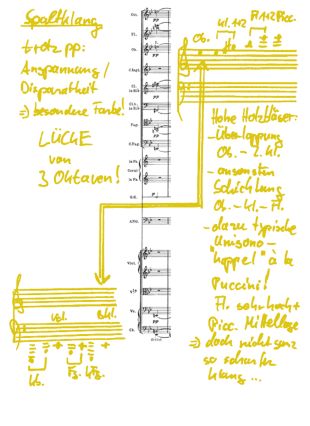 Spaltklang
trotz pp:
Anspannung/
Disparatheit
=> besondere Farbe!
LÜCKE
von
3 Oktaven!
Ott.
Fl.
Ob.
C.Ingl.
Cl.
in Sib
Fag.
C.Fag.
in Fa
Corni
in Fa
Viol.
Vc.
Cb.
pp
Ob.
Kl. 1+2
Fl 1+2 Picc.
Hohe Holzbläser:
- Überlappung
Ob. - 2. Kl.
- ansonsten
Schichtung
Ob. - Kl. - Fl.
- dazu typische
Unisono-
"koppel" à la
Puccini!
Fl. sehr hoch +
Picc. Mittellage
=> doch nicht ganz
so scharfer
Klang ...
Kb.